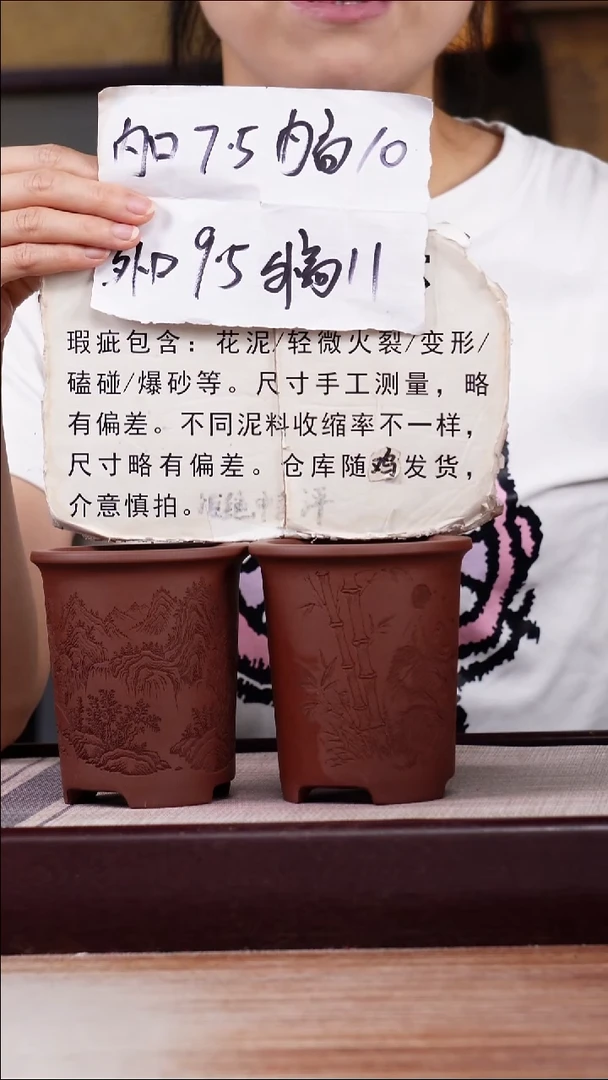 内口7.5 内高10
外口9.5 外高11
瑕疵包含：花泥/轻微火裂/变形/
磕碰/爆砂等。尺寸手工测量，略
有偏差。不同泥料收缩率不一样，
尺寸略有偏差。仓库随鸡发货，
介意慎拍。